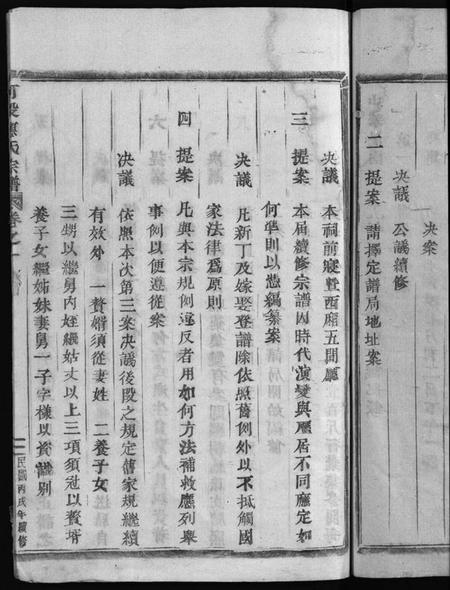 決案
決議 公議續修
二 提案 請擇定譜局地址案
決議 本祠前寢暨西廂五間廳
三 提案 本届續修宗譜因時代演變與舊居不同應定如
何準則以憑編纂案
決議 凡新丁及嫁娶登譜除依照舊例外以不抵觸國
家法律爲原則
四 提案 凡與本宗規例違反者用如何方法補救應列舉
事例以便遵從案
決議 依照本次第三案決議後段之規定舊家規繼續
有效外 一贅婿須從妻姓 二養子女
三甥以繼舅内姪繼姑丈以上三項須冠以贅壻
養子女繼姊妹妻舅一子字樣以資識别
民國丙戌年續修